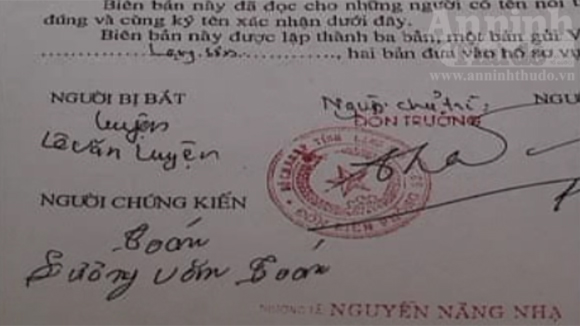 Biên bản này đã đọc cho những người có tên nói t
đúng và cùng ký tên xác nhận dưới đây.
Biên bản này được lập thành ba bản, một bản gửi V
Lạng Sơn, hai bản đưa vào hồ sơ vụ
An ninh
Thudo.vn
www.anninhthudo.vn
NGƯỜI BỊ BẮT
Luyện
Lê Văn Luyện
Người chủ trì:
NGƯ
ĐỒN TRƯỞNG
NGƯỜI CHỨNG KIẾN
Toán
Dương Văn Toán
THƯỢNG TÁ: NGUYỄN NĂNG NHẠ